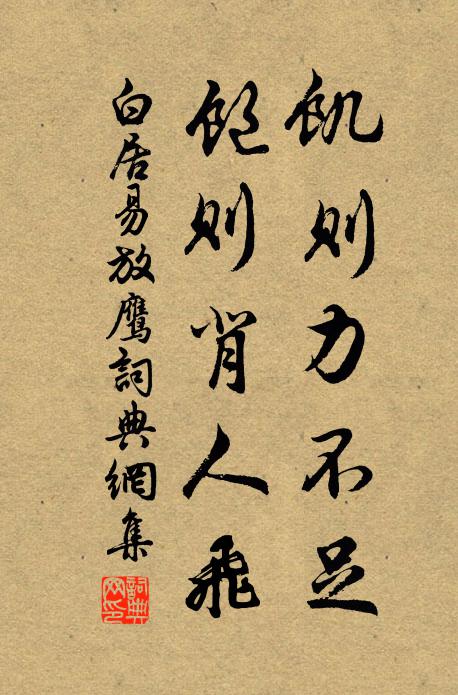 飢則力不足
飽則背人飛
白居易放鷹詞典網集
詞典网印